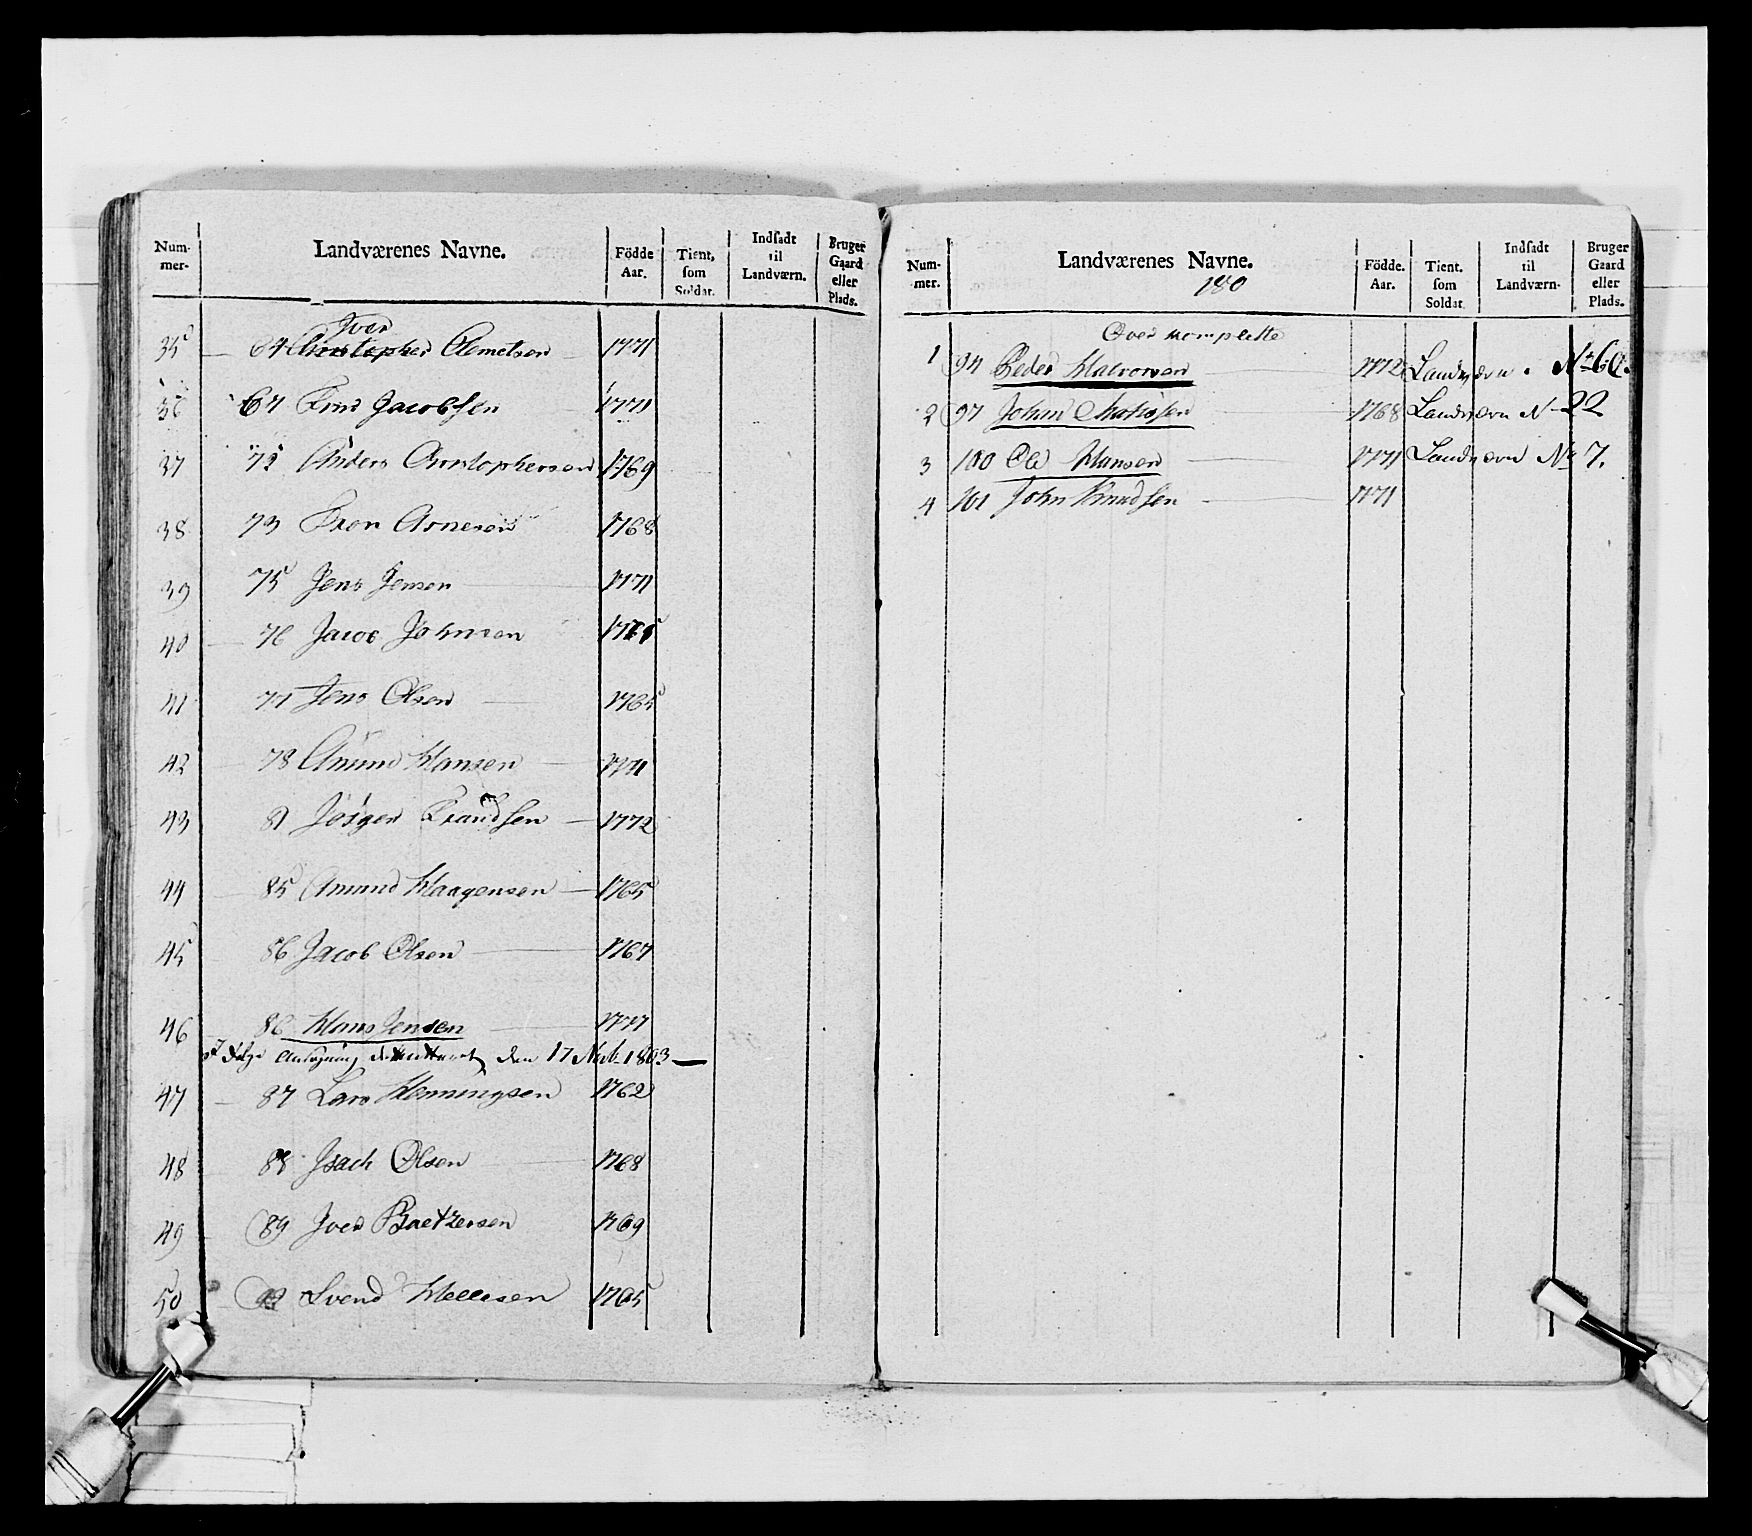 Num-
mer-
Landværenes Navne.
Födde
Aar.
Tient,
som
Soldat.
Indsadt
til
Landværn.
Bruger
Gaard
eller
Plads.
Iver
35 64 Christopher Clemetsen 1771
36 67 Jacobsen 1771
37 72 Anders Christophersen 1769
38 73 Arnesen 1768
39 75 Jens Jensen 1771
40 76 Jacob Johnsen
41 77 Jens Olsen 1765
42 78 Amund Hansen 1771
43 81 Jörgen 1772
44 85 Amund Haagensen 1765
45 86 Jacob Olsen 1767
46 86 Hans Jensen 1777
den 17 1803
47 87 Lars Henningsen 1762
48 88 Isach Olsen 1768
49 89 Iver 1769
50 Svend 1765
Num-
mer.
Landværenes Navne.
180
Födde.
Aar.
Tient.
som
Soldat
Indsadt
til
Landværn-
Bruger
Gaard
eller
Plads.
Over komplette
1 94 Peder Halvorsen 1772 Landværn. No 60.
2 97 Johan Mathisen 1768 Landværn N 22
3 100 Ole Hansen 1771 Landværn No 7.
4 101 John Knudsen 1771